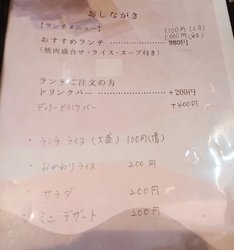 おしながき
【ランチメニュー】
1,100円(土日)
1,000円
おすすめランチ …………… 980円
(焼肉盛合せ・ライス・スープ付き)
ランチご注文の方
ドリンクバー …………… +200円
ディナードリンクバー +400円
・ランチライス(大盛)100円(増)
・おかわりライス 200円
・サラダ 200円
・ミニデザート 200円